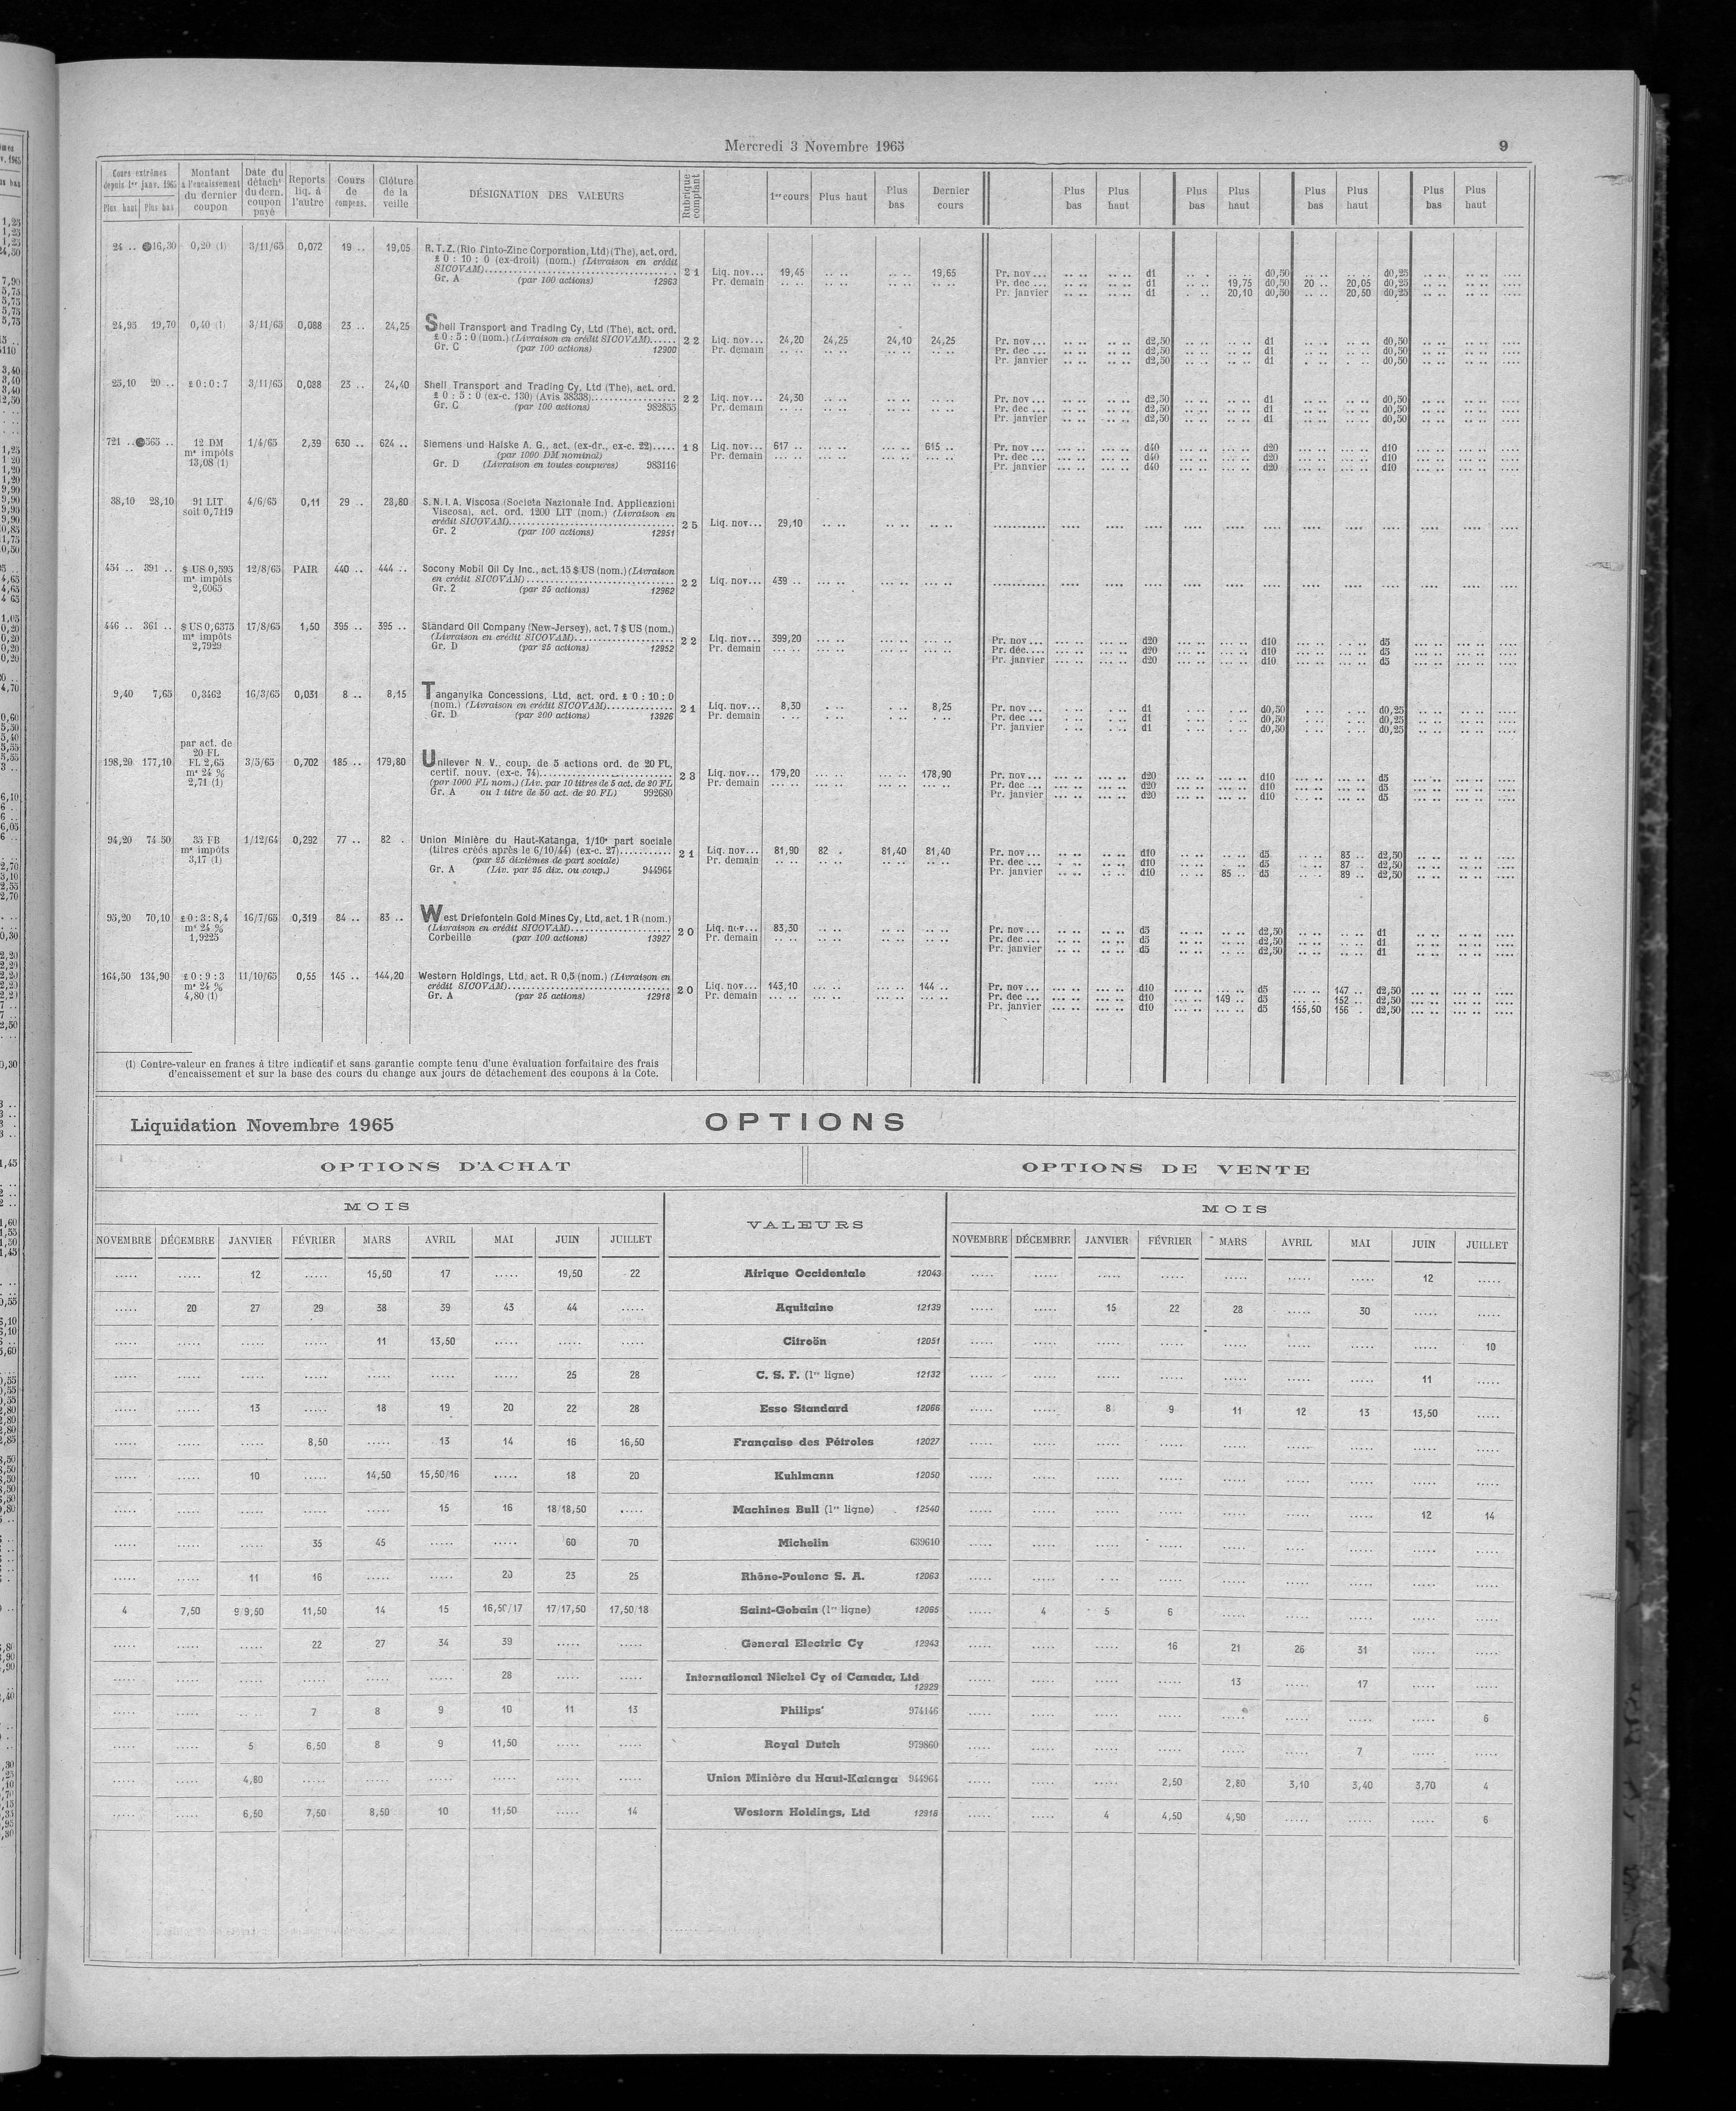 Mercredi 3 Novembre 1965
9
Cours extrêmes depuis 1er janv. 1965 Plus haut Plus bas | Montant à l'encaissement du dernier coupon | Date du détacht du dern. coupon payé | Reports liq. à l'autre | Cours de compens. | Clôture de la veille | DÉSIGNATION DES VALEURS | Rubrique comptant | 1er cours | Plus haut | Plus bas | Dernier cours | Plus bas | Plus haut | Plus bas | Plus haut | Plus bas | Plus haut | Plus bas | Plus haut
24 .. 16,30 0,20 (1) 3/11/65 0,072 19 .. 19,05 R.T.Z. (Rio Tinto-Zinc Corporation, Ltd) (The), act. ord.
£ 0 : 10 : 0 (ex-droit) (nom.) (Livraison en crédit
SICOVAM) 21 Liq. nov... 19,45 .. .. .. .. 19,65 Pr. nov ... d1 d0,50 d0,25
Gr. A (par 100 actions) 12963 Pr. demain Pr. dec ... d1 19,75 d0,50 20 .. 20,05 d0,25
Pr. janvier d1 20,10 d0,50 20,50 d0,25
24,95 19,70 0,40 (1) 3/11/65 0,088 23 .. 24,25 Shell Transport and Trading Cy, Ltd (The), act. ord.
£ 0 : 5 : 0 (nom.) (Livraison en crédit SICOVAM) 22 Liq. nov... 24,20 24,25 24,10 24,25 Pr. nov ... d2,50 d1 d0,50
Gr. C (par 100 actions) 12900 Pr. demain Pr. dec ... d2,50 d1 d0,50
Pr. janvier d2,50 d1 d0,50
25,10 20 .. £ 0 : 0 : 7 3/11/65 0,088 23 .. 24,40 Shell Transport and Trading Cy, Ltd (The), act. ord.
£ 0 : 5 : 0 (ex-c. 130) (Avis 38338) 22 Liq. nov... 24,30 Pr. nov ... d2,50 d1 d0,50
Gr. C (par 100 actions) 982855 Pr. demain Pr. dec ... d2,50 d1 d0,50
Pr. janvier d2,50 d1 d0,50
721 .. 565 .. 12 DM 1/4/65 2,39 630 .. 624 .. Siemens und Halske A. G., act. (ex-dr., ex-c. 22) 18 Liq. nov... 617 .. 615 .. Pr. nov ... d40 d20 d10
me impôts (par 1000 DM nominal) Pr. demain Pr. dec ... d40 d20 d10
13,08 (1) Gr. D (Livraison en toutes coupures) 983116 Pr. janvier d40 d20 d10
38,10 28,10 91 LIT 4/6/65 0,11 29 .. 28,80 S.N.I.A. Viscosa (Societa Nazionale Ind. Applicazioni
soit 0,7119 Viscosa), act. ord. 1200 LIT (nom.) (Livraison en
crédit SICOVAM) 25 Liq. nov... 29,10
Gr. Z (par 100 actions) 12951
454 .. 391 .. $ US 0,595 12/8/65 PAIR 440 .. 444 .. Socony Mobil Oil Cy Inc., act. 15 $ US (nom.) (Livraison
me impôts en crédit SICOVAM) 22 Liq. nov... 439 ..
2,6065 Gr. Z (par 25 actions) 12962
446 .. 361 .. $ US 0,6375 17/8/65 1,50 395 .. 395 .. Standard Oil Company (New-Jersey), act. 7 $ US (nom.)
me impôts (Livraison en crédit SICOVAM) 22 Liq. nov... 399,20 Pr. nov ... d20 d10 d5
2,7929 Gr. D (par 25 actions) 12952 Pr. demain Pr. déc.... d20 d10 d5
Pr. janvier d20 d10 d5
9,40 7,65 0,3462 16/3/65 0,031 8 .. 8,15 Tanganyika Concessions, Ltd, act. ord. £ 0 : 10 : 0
(nom.) (Livraison en crédit SICOVAM) 21 Liq. nov... 8,30 8,25 Pr. nov ... d1 d0,50 d0,25
Gr. D (par 200 actions) 13926 Pr. demain Pr. dec ... d1 d0,50 d0,25
Pr. janvier d1 d0,50 d0,25
par act. de
20 FL
198,20 177,10 FL 2,65 3/5/65 0,702 185 .. 179,80 Unilever N. V., coup. de 5 actions ord. de 20 FL,
me 24 % certif. nouv. (ex-c. 74) 23 Liq. nov... 179,20 178,90 Pr. nov ... d20 d10 d5
2,71 (1) (par 1000 FL nom.) (Liv. par 10 titres de 5 act. de 20 FL Pr. demain Pr. dec ... d20 d10 d5
Gr. A ou 1 titre de 50 act. de 20 FL) 992680 Pr. janvier d20 d10 d5
94,20 74 50 35 FB 1/12/64 0,292 77 .. 82 . Union Minière du Haut-Katanga, 1/10e part sociale
me impôts (titres créés après le 6/10/44) (ex-c. 27) 21 Liq. nov... 81,90 82 . 81,40 81,40 Pr. nov ... d10 d5 83 .. d2,50
3,17 (1) (par 25 dixièmes de part sociale) Pr. demain Pr. dec ... d10 d5 87 .. d2,50
Gr. A (Liv. par 25 dix. ou coup.) 944964 Pr. janvier d10 85 .. d5 89 .. d2,50
95,20 70,10 £ 0 : 3 : 8,4 16/7/65 0,319 84 .. 83 .. West Driefontein Gold Mines Cy, Ltd, act. 1 R (nom.)
me 24 % (Livraison en crédit SICOVAM) 20 Liq. nov... 83,30 Pr. nov ... d5 d2,50 d1
1,9225 Corbeille (par 100 actions) 13927 Pr. demain Pr. dec ... d5 d2,50 d1
Pr. janvier d5 d2,50 d1
164,50 134,90 £ 0 : 9 : 3 11/10/65 0,55 145 .. 144,20 Western Holdings, Ltd, act. R 0,5 (nom.) (Livraison en
me 24 % crédit SICOVAM) 20 Liq. nov... 143,10 144 .. Pr. nov ... d10 d5 147 .. d2,50
4,80 (1) Gr. A (par 25 actions) 12918 Pr. demain Pr. dec ... d10 149 .. d5 152 .. d2,50
Pr. janvier d10 d5 155,50 156 . d2,50
(1) Contre-valeur en francs à titre indicatif et sans garantie compte tenu d'une évaluation forfaitaire des frais
d'encaissement et sur la base des cours du change aux jours de détachement des coupons à la Cote.
Liquidation Novembre 1965
OPTIONS
OPTIONS D'ACHAT
OPTIONS DE VENTE
MOIS VALEURS MOIS
NOVEMBRE DÉCEMBRE JANVIER FÉVRIER MARS AVRIL MAI JUIN JUILLET NOVEMBRE DÉCEMBRE JANVIER FÉVRIER MARS AVRIL MAI JUIN JUILLET
..... ..... 12 ..... 15,50 17 ..... 19,50 22 Afrique Occidentale 12043 ..... ..... ..... ..... ..... ..... ..... 12 .....
..... 20 27 29 38 39 43 44 ..... Aquitaine 12139 ..... ..... 15 22 28 ..... 30 ..... .....
..... ..... ..... ..... 11 13,50 ..... ..... ..... Citroën 12051 ..... ..... ..... ..... ..... ..... ..... ..... 10
..... ..... ..... ..... ..... ..... ..... 25 28 C. S. F. (1re ligne) 12132 ..... ..... ..... ..... ..... ..... ..... 11 .....
..... ..... 13 ..... 18 19 20 22 28 Esso Standard 12066 ..... ..... 8 9 11 12 13 13,50 .....
..... ..... ..... 8,50 ..... 13 14 16 16,50 Française des Pétroles 12027 ..... ..... ..... ..... ..... ..... ..... ..... .....
..... ..... 10 ..... 14,50 15,50/16 ..... 18 20 Kuhlmann 12050 ..... ..... ..... ..... ..... ..... ..... ..... .....
..... ..... ..... ..... ..... 15 16 18/18,50 ..... Machines Bull (1re ligne) 12540 ..... ..... ..... ..... ..... ..... ..... 12 14
..... ..... ..... 35 45 ..... ..... 60 70 Michelin 639610 ..... ..... ..... ..... ..... ..... ..... ..... .....
..... ..... 11 16 ..... ..... 20 23 25 Rhône-Poulenc S. A. 12063 ..... ..... ..... ..... ..... ..... ..... ..... .....
4 7,50 9/9,50 11,50 14 15 16,50/17 17/17,50 17,50/18 Saint-Gobain (1re ligne) 12065 ..... 4 5 6 ..... ..... ..... ..... .....
..... ..... ..... 22 27 34 39 ..... ..... General Electric Cy 12943 ..... ..... ..... 16 21 26 31 ..... .....
..... ..... ..... ..... ..... ..... 28 ..... ..... International Nickel Cy of Canada, Ltd 12929 ..... ..... ..... ..... 13 ..... 17 ..... .....
..... ..... ..... 7 8 9 10 11 13 Philips' 974146 ..... ..... ..... ..... ..... ..... ..... ..... 6
..... ..... 5 6,50 8 9 11,50 ..... ..... Royal Dutch 979860 ..... ..... ..... ..... ..... ..... 7 ..... .....
..... ..... 4,80 ..... ..... ..... ..... ..... ..... Union Minière du Haut-Katanga 944964 ..... ..... ..... 2,50 2,80 3,10 3,40 3,70 4
..... ..... 6,50 7,50 8,50 10 11,50 ..... 14 Western Holdings, Ltd 12918 ..... ..... 4 4,50 4,90 ..... ..... ..... 6